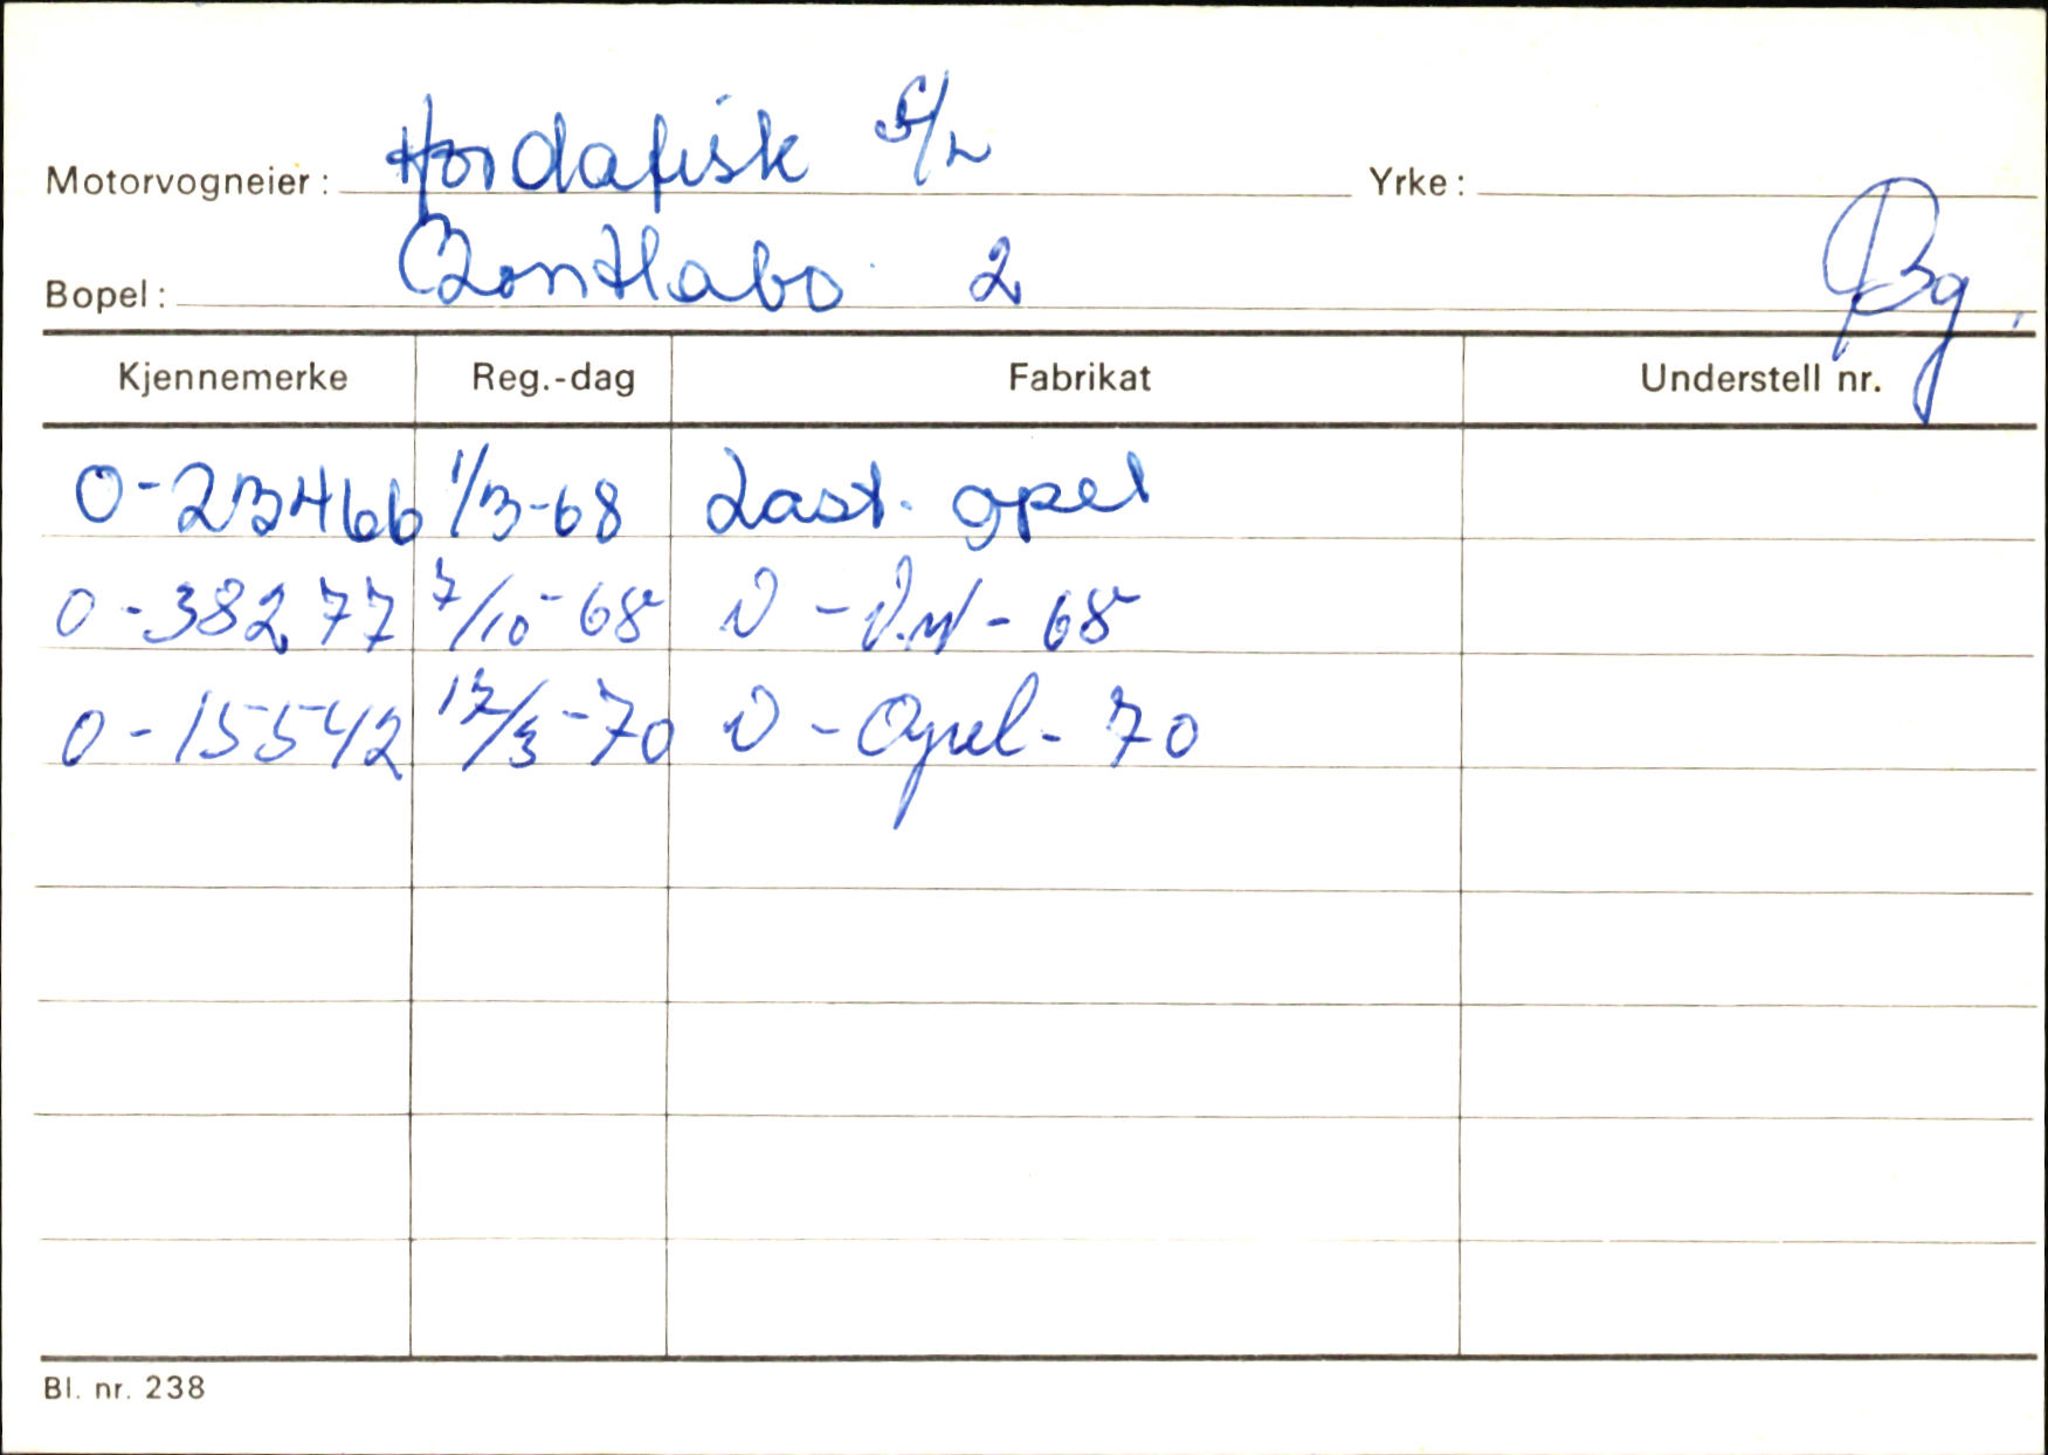 Motorvogneier: Hordafisk S/L Yrke:
Bopel: Bontlabo 2 Bg.
Kjennemerke Reg.-dag Fabrikat Understell nr.
O-23466 1/3-68 Last. opel
O-38277 7/10-68 V-V.W-68
O-15542 17/3-70 V-Opel-70
Bl. nr. 238